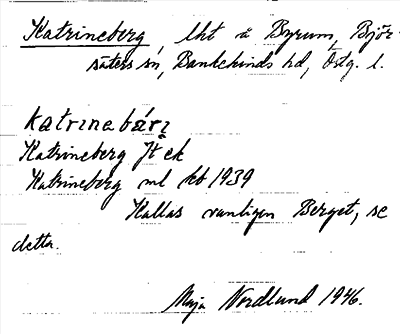 Katrineberg lht å Byrum, Björ-
säters sn, Bankekinds hd, Östg. l.
katrinebärj
Katrineberg Jt ek
Katrineberg ml kb 1939
Kallas vanligen Berget, se
detta.
Maja Nordlund 1946.